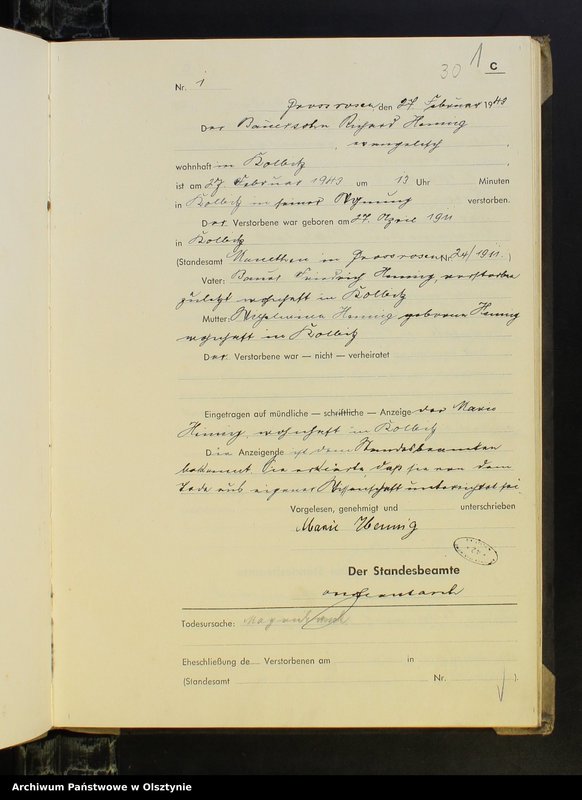 30 1 C
Nr. 1
Grossrosen, den 27. Februar 1943
Der Bauersohn Richard Hennig
, evangelisch,
wohnhaft in Kolbitz,
ist am 27. Februar 1943 um 13 Uhr Minuten
in Kolbitz in seiner Wohnung verstorben.
Der Verstorbene war geboren am 27. April 1911
in Kolbitz
(Standesamt in Grossrosen Nr. 24/1911.)
Vater: Bauer Friedrich Hennig, verstorben
zuletzt wohnhaft in Kolbitz
Mutter: Wilhelmine Hennig geborene Hennig
wohnhaft in Kolbitz
Der Verstorbene war — nicht — verheiratet
Eingetragen auf mündliche — schriftliche — Anzeige der Marie
Hennig, wohnhaft in Kolbitz
Die Anzeigende ist dem Standesbeamten
bekannt. Sie erklärte daß sie von dem
Tode aus eigener Wissenschaft unterrichtet sei.
Vorgelesen, genehmigt und unterschrieben
Marie Hennig
Der Standesbeamte
Todesursache:
Eheschließung de Verstorbenen am in
(Standesamt Nr. ).
Archiwum Państwowe w Olsztynie